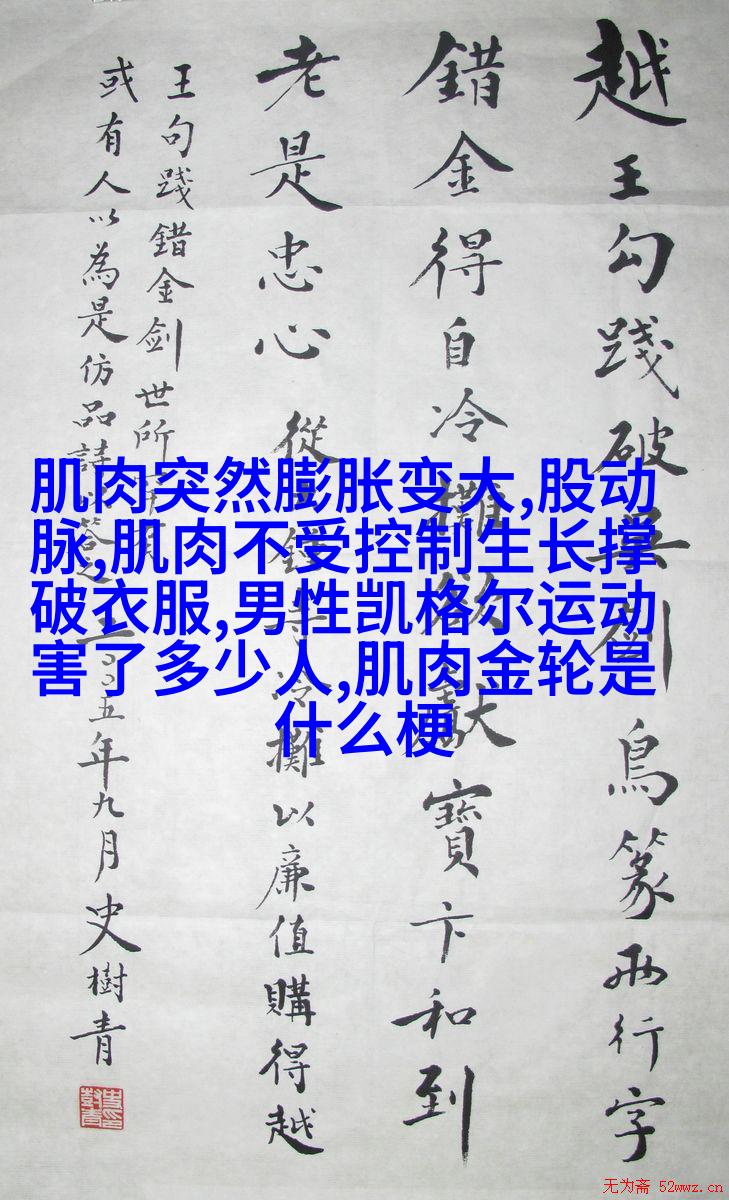 越王勾踐破吳劍鳥篆兩行字
錯金得自冷攤欲獻寶卞和到
老是忠心 從鐘寺冷攤以廉值購得越
王句踐錯金剑世所罕有
或有人以為是仿品詩以答之二〇〇五年九月史樹青
肌肉突然膨胀变大,股动
脉,肌肉不受控制生长撑
破衣服,男性凯格尔运动
害了多少人,肌肉金轮是
什么梗
无为斋 52wwz.cn